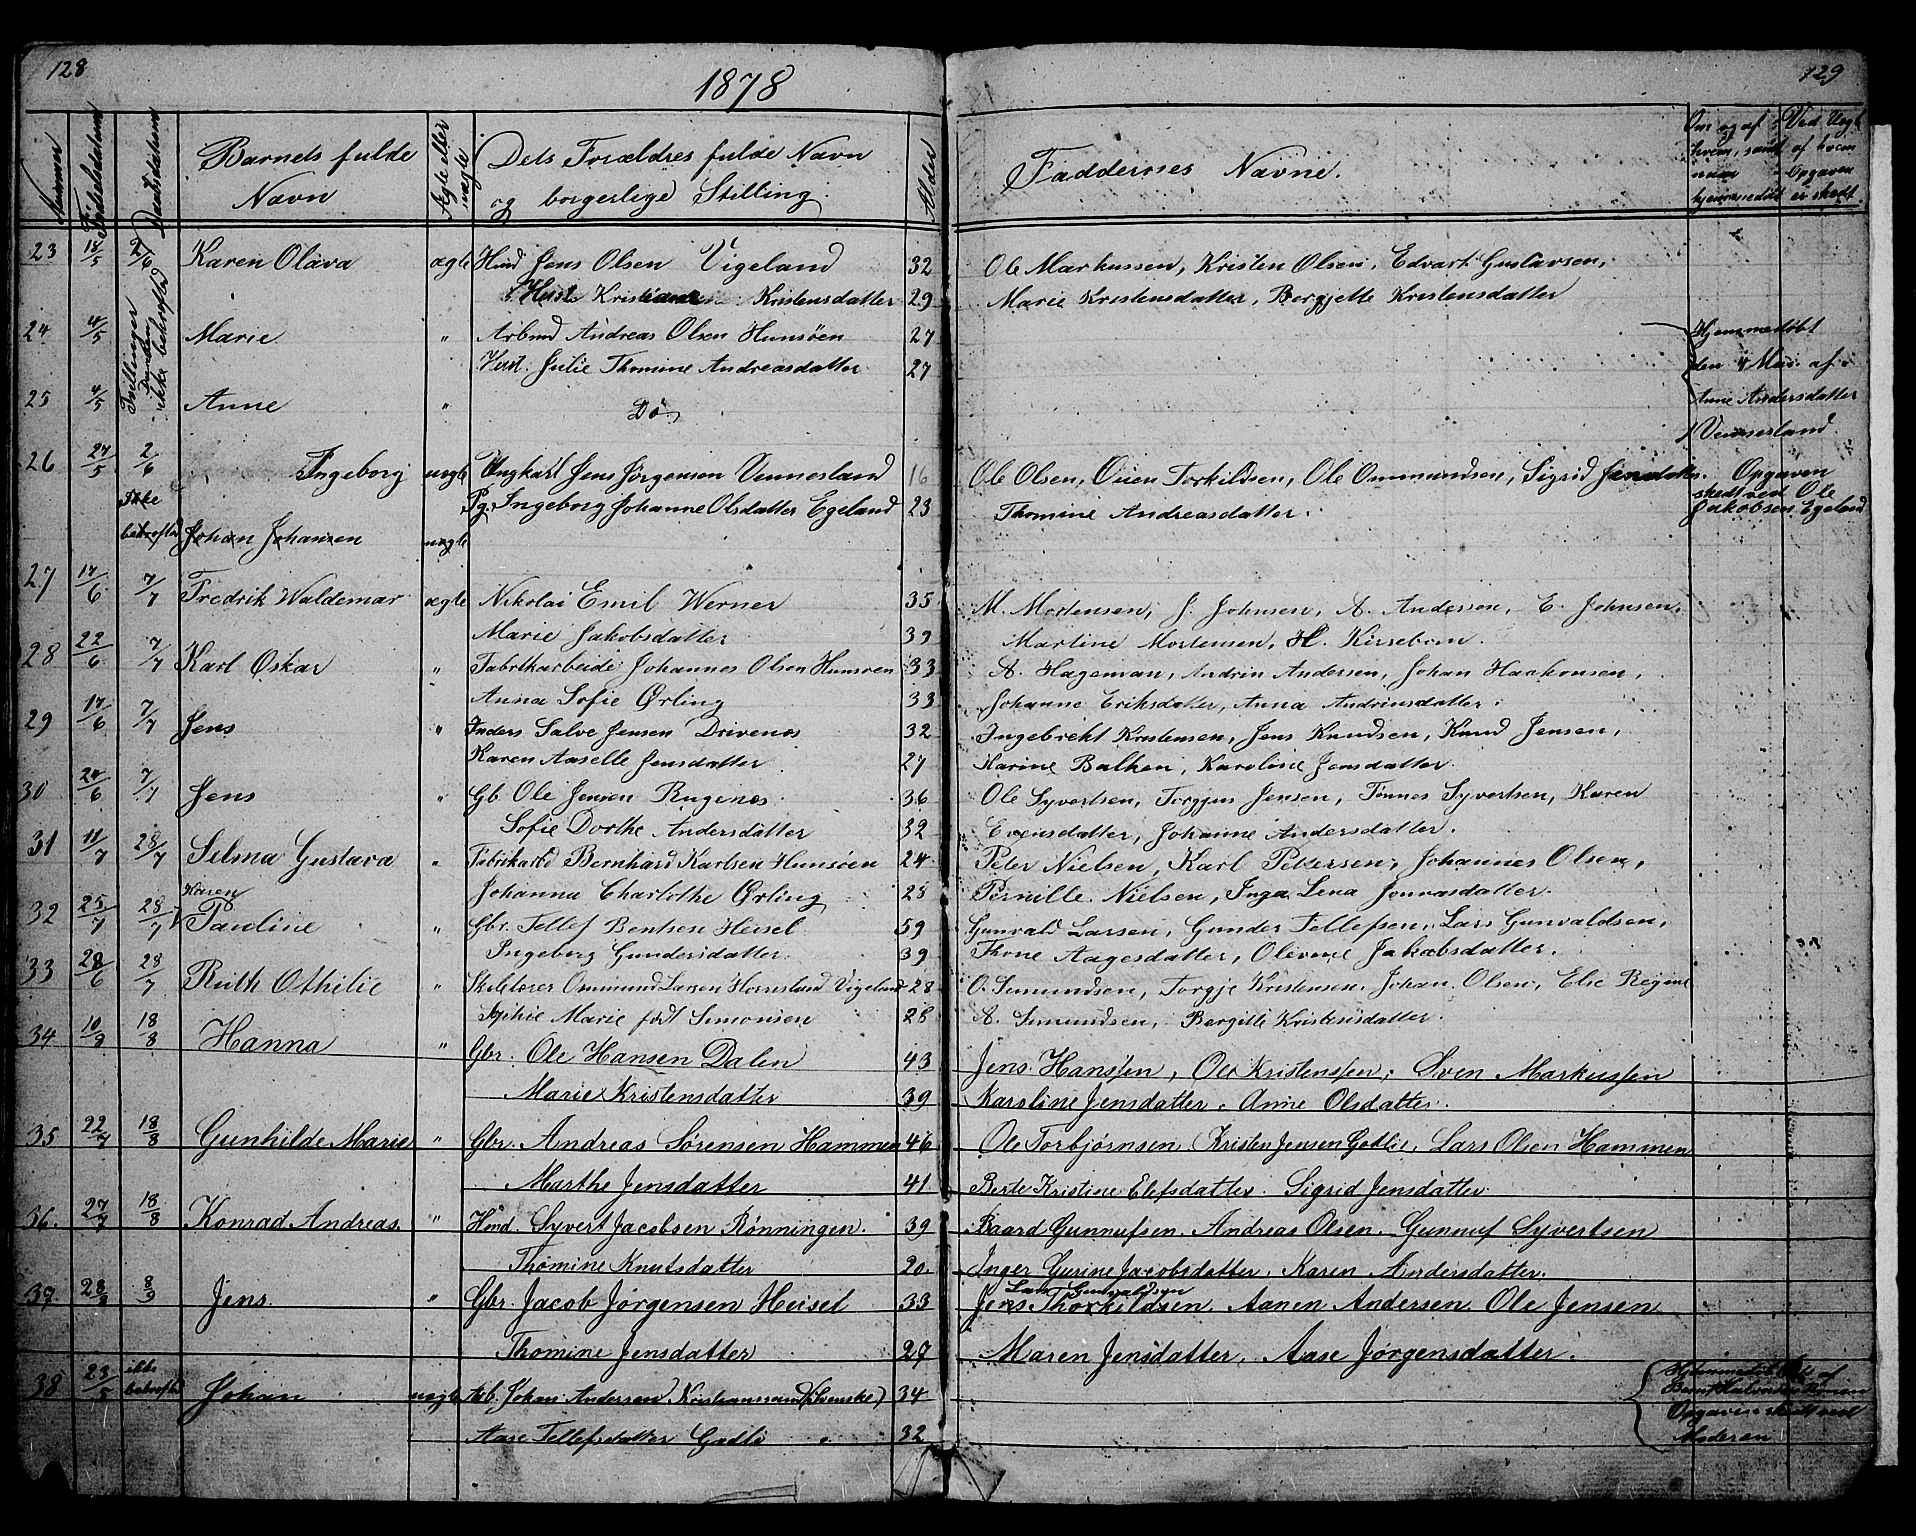 128
1878
129
Nummer | Fødselsdatum | Daabsdatum | Barnets fulde Navn | Ægte eller uægte | Dets Forældres fulde Navn og borgerlige Stilling. | Alder | Faddernes Navne. | Om og af hvem, samt naar hjemmedøbt | Ved Uægt. af hvem Opgaven er skedt
23 18/5 2/6 Karen Olava ægte Hmd Jens Olsen Vigeland 32 Ole Markussen, Kristen Olsen, Edvart Gustavsen,
Hust. Kristiane Kristensdatter 29 Marie Kristensdatter, Bergjette Kristensdatter
Tvillinger
Daaben ikke bekræftet
24 4/5 Marie " Arbmd Andreas Olsen Hunsøen 27 Hjemmedøbt
Hust. Julie Thomine Andreasdatter 27 den 4 Mai af
25 4/5 Anne " Do Anne Andersdatter
Vennesland
26 27/5 2/6 Ingeborg uægte Ungkarl Jens Jørgensen Vennesland 16 Ole Olsen, Ouen Torkildsen, Ole Ommundsen, Sigrid Jensdatter. Opgaven
Pg. Ingeborg Johanne Olsdatter Egeland 23 Thomine Andreasdatter. skedt ved Ole Jakobsen Egeland
Ikke bekræftet Johan Johansen uægte
27 17/6 7/7 Fredrik Waldemar ægte Nikolai Emil Werner 35 M. Mortensen, J. Johnsen, A. Andersen, E. Johnsen,
Marie Jakobsdatter 39 Martine Mortensen, H. Kirsebom.
28 22/6 7/7 Karl Oskar " Fabrikarbeide Johannes Olsen Hunsøen 33 A. Hageman, Andrin Andersen, Johan Haakonsen,
Anna Sofie Ørling 33 Johanne Eriksdatter, Anna Andrinsdatter.
29 17/6 7/7 Jens " Inders Salve Jensen Drivenes 32 Ingebrekt Kristensen, Jens Knudsen, Knud Jensen,
Karen Aaselle Jensdatter 27 Karine Balken, Karoline Jensdatter.
30 24/6 7/7 Jens " Gb. Ole Jensen Rugenes 36 Ole Syvertsen, Torgjus Jensen, Tønnes Syvertsen, Karen
Sofie Dorthe Andersdatter 32 Evensdatter, Johanne Andersdatter.
31 11/7 28/7 Selma Gustava " Fabrikarbd Bernhard Karlsen Hunsøen 24 Peter Nielsen, Karl Pettersen, Johannes Olsen,
Johanna Charlothe Ørling 28 Pernille Nielsen, Inga Lena Jonnasdatter.
Karen
32 25/7 28/7 Pauline " Gbr. Tellef Bentsen Heisel 59 Gunvald Larsen, Gunder Tellefsen, Lars Gunvaldsen,
Ingeborg Gundersdatter 39 Thone Aagesdatter, Olivine Jakobsdatter.
33 28/6 28/7 Ruth Othilie " Skolelærer Ommund Larsen Horrisland Vigeland 28 O. Simundsen, Torgje Kristensen, Johan Olsen, Else Regine
Sophie Marie født Simonsen 28 A. Simundsen, Bergitte Kristensdatter.
34 10/8 18/8 Hanna " Gbr. Ole Hansen Dalen 43 Jens Hansen, Ole Kristensen, Sven Markussen
Marie Kristensdatter 39 Karoline Jensdatter. Anne Olsdatter.
35 22/7 18/8 Gunhilde Marie " Gbr. Andreas Sørensen Hammen 46 Ole Torbjørnsen, Kristen Jensen Gotlie, Lars Olsen Hammen
Marthe Jensdatter 41 Berte Kristine Elefsdatter. Sigrid Jensdatter
36. 27/7 18/8 Konrad Andreas. " Hmd. Syvert Jacobsen Rønningen. 39 Baard Gunnufsen. Andreas Olsen. Gunnuf Syvertsen
Thomine Knutsdatter 20. Inger Gurine Jacobsdatter. Karen Andersdatter.
Lars Gunvaldsen
37. 28/8 8/9 Jens. " Gbr. Jacob Jørgensen Heisel 33 Jens Thorkildsen. Aanen Andersen. Ole Jensen
Thomine Jensdatter 27 Maren Jensdatter. Aase Jørgensdatter.
38 23/5 ikke bekræftet Johan uægte Arb. Johan Andersen Kristianssand (Svenske) 34 Hjemmedøbt af
Aase Tellefsdatter Godli 32 Opgaven skedt ved Moderen